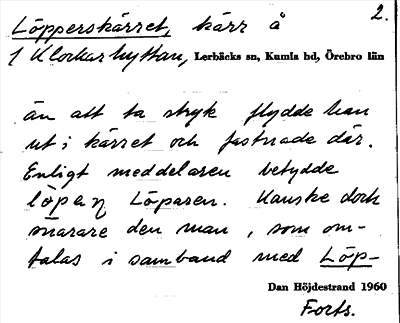 Löpperskärret, kärr å 2.
1 Klockarhyttan, Lerbäcks sn, Kumla hd, Örebro län
än att ta stryk flydde han
ut i kärret och fastnade där.
Enligt meddelaren betydde
Löparen. Kanske dock
snarare den man, som om-
talas i samband med Löp-
Dan Höjdestrand 1960
Forts.